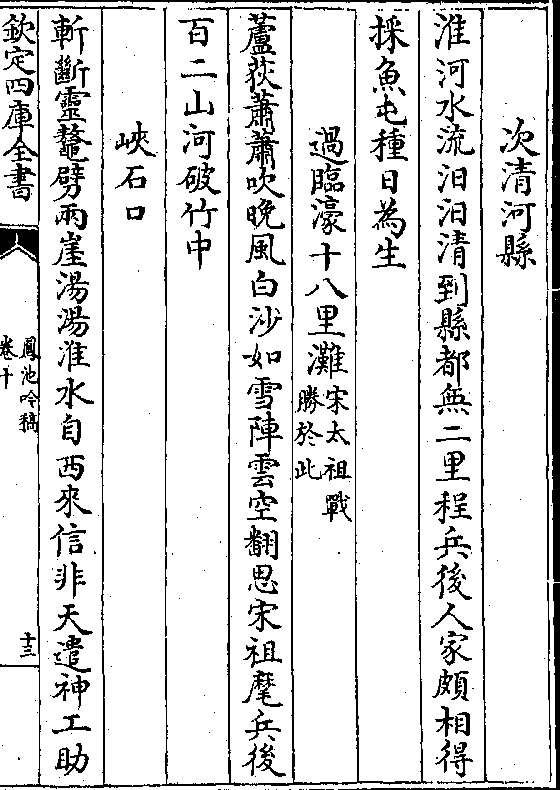 次清河縣
淮河水流汩汩清到縣都無二里程兵後人家頗相得
採魚屯種日為生
過臨濠十八里灘宋太祖戰
勝於此
蘆荻蕭蕭吹晚風白沙如雪陣雲空翻思宋祖麾兵後
百二山河破竹中
峽石口
斬斷靈鼇劈兩崖湯湯淮水自西來信非天遣神工助
欽定四庫全書
鳳池吟稿
卷十
十三